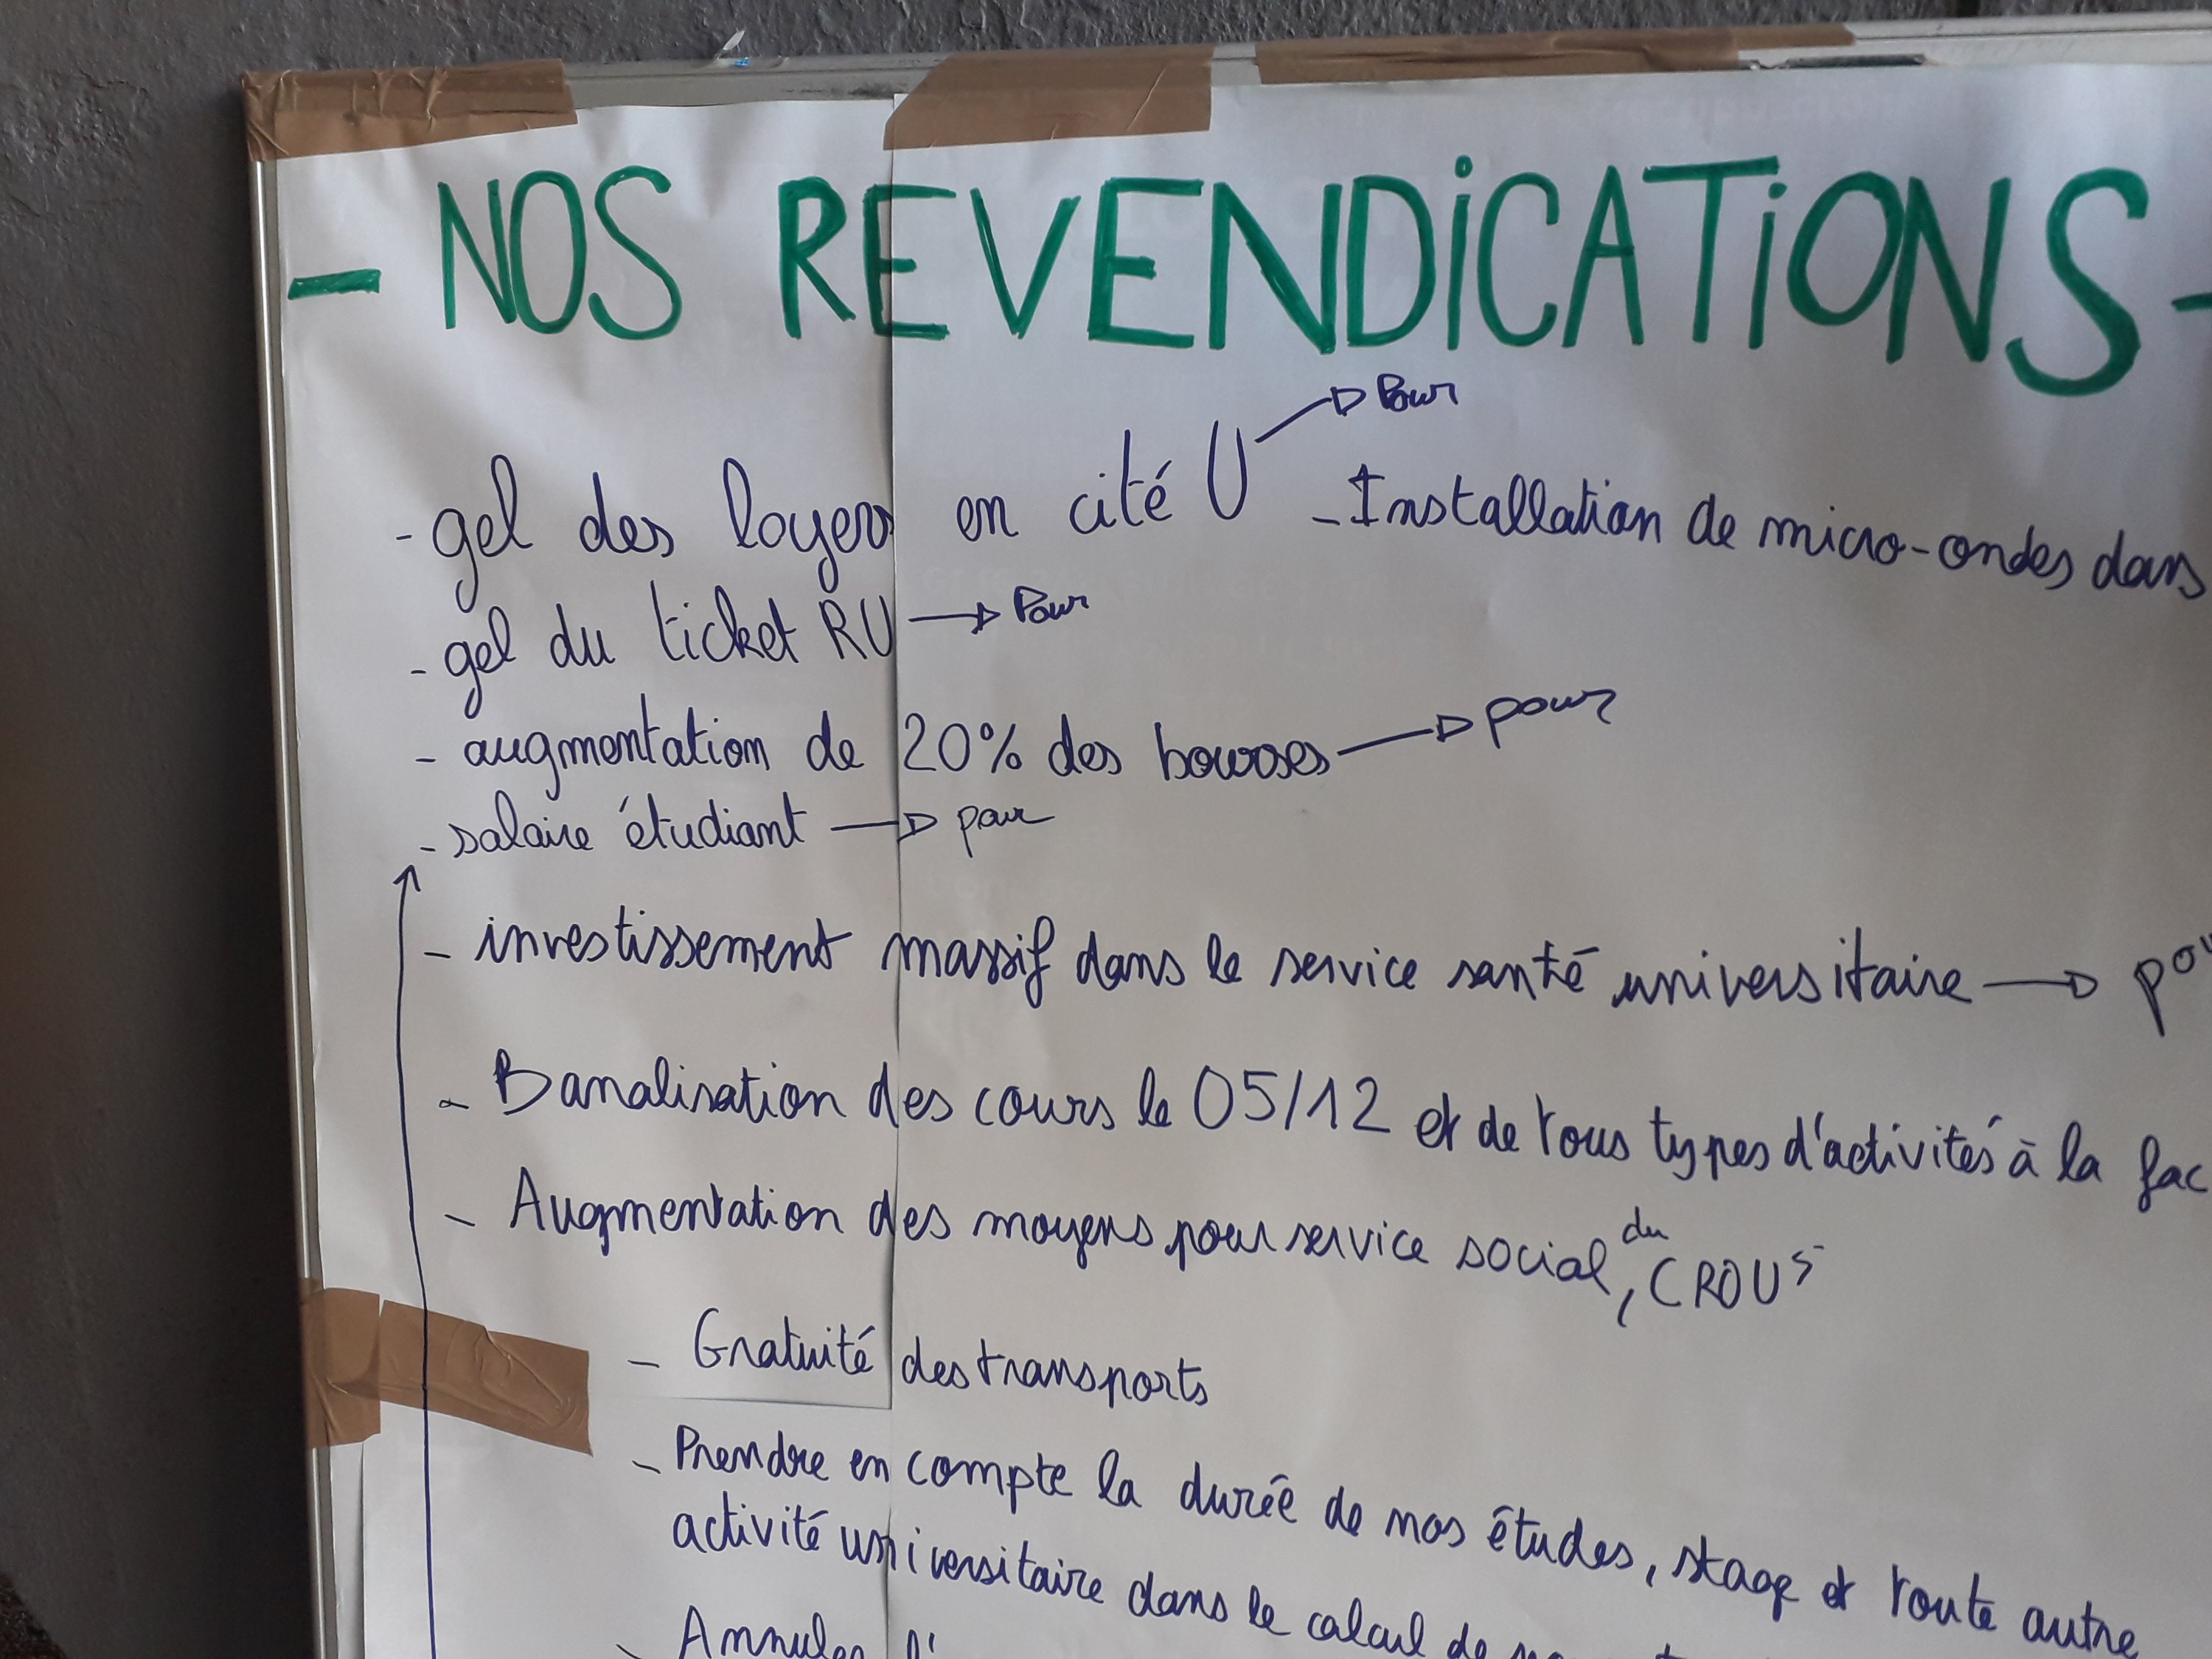 - NOS REVENDICATIONS -
- gel des loyers en cité U → Pour
- Installation de micro-ondes dans
- gel du ticket RU → Pour
- augmentation de 20% des bourses → pour
- salaire étudiant → pour
- investissement massif dans le service santé universitaire →
- Banalisation des cours le 05/12 et de tous types d'activités à la fac
- Augmentation des moyens pour service social, du CROUS
- Gratuité des transports
- Prendre en compte la durée de nos études, stage et toute autre
activité universitaire dans le calcul de
- Annuler